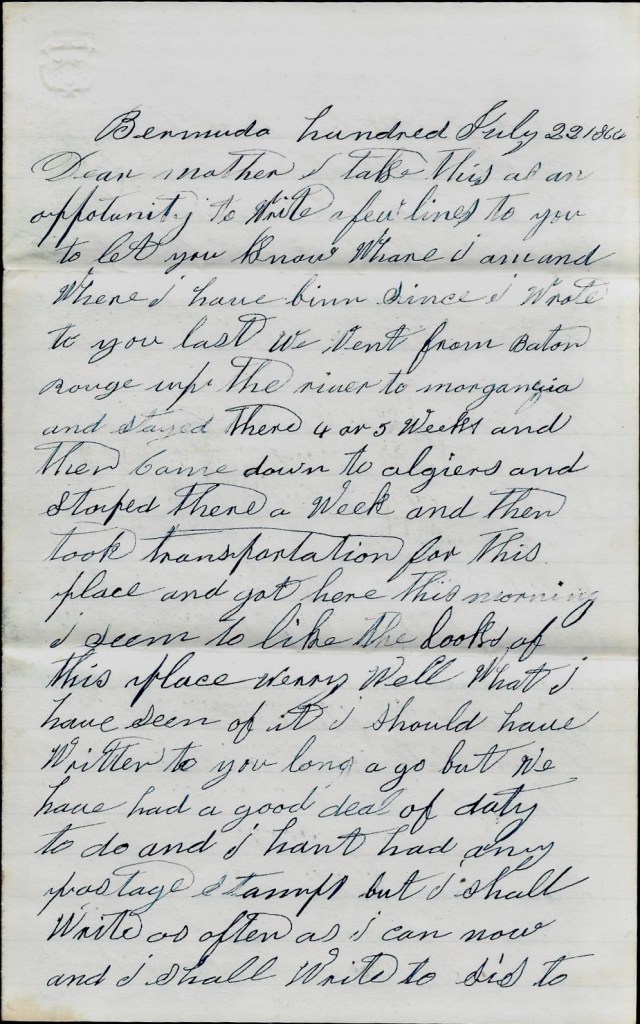 Bermuda hundred July 22 1864
Dear mother i take this as an
oppotunity to Write a few lines to you
to let you know Whare i am and
Where i have binn since i Wrote
to you last We Went from Baton
Rouge up the river to morganzia
and stayed there 4 or 5 Weeks and
then Came down to algiers and
stoped there a Week and then
took transportation for this
place and got here this morning
i seem to like the looks of
this place verry Well What i
have seen of it i should have
Written to you long a go but We
have had a good deal of duty
to do and i hant had any
postage stamps but i shall
Write as often as i can now
and i shall Write to sis to